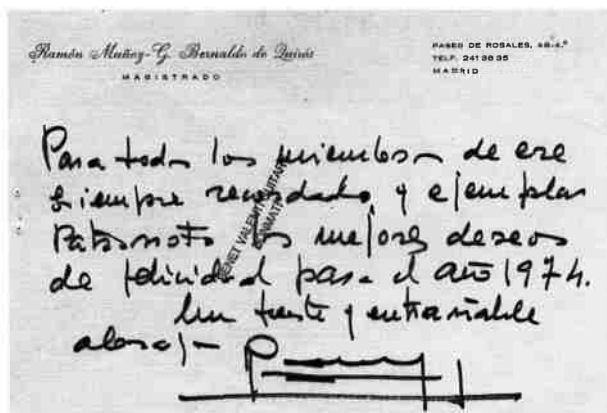 Ramón Muñoz-G. Bernaldo de Quirós
MAGISTRADO
PASEO DE ROSALES, 48-4.º
TELF. 241 38 35
MADRID
Para todos los miembros de ese
siempre recordado y ejemplar
Patronato los mejores deseos
de felicidad para el año 1974.
Un fuerte y entrañable
abrazo
BENET VALENT